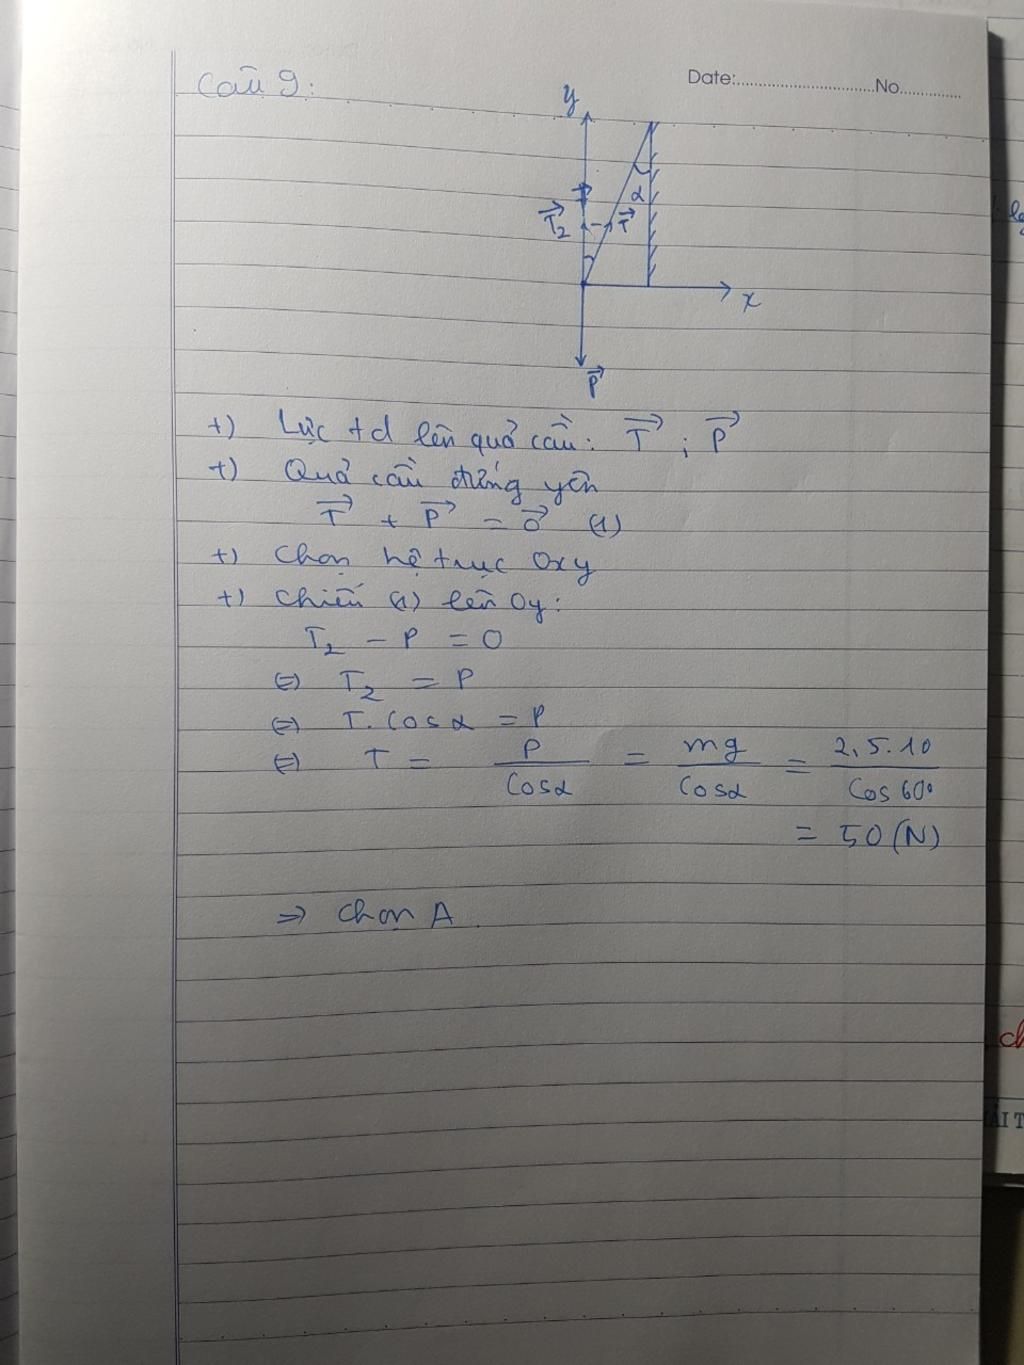 Câu 9:
Date:..............................No..............
y
α
T₂ T
x
P
+) Lực td lên quả cầu: T ; P
+) Quả cầu đứng yên
T + P = 0 (1)
+) Chọn hệ trục Oxy
+) Chiếu (1) lên Oy:
T₂ - P = 0
⇔ T₂ = P
⇔ T. Cosα = P
⇔ T = P/Cosα = mg/Cosα = 2,5.10/Cos 60°
= 50 (N)
⇒ Chọn A.
ẢI T